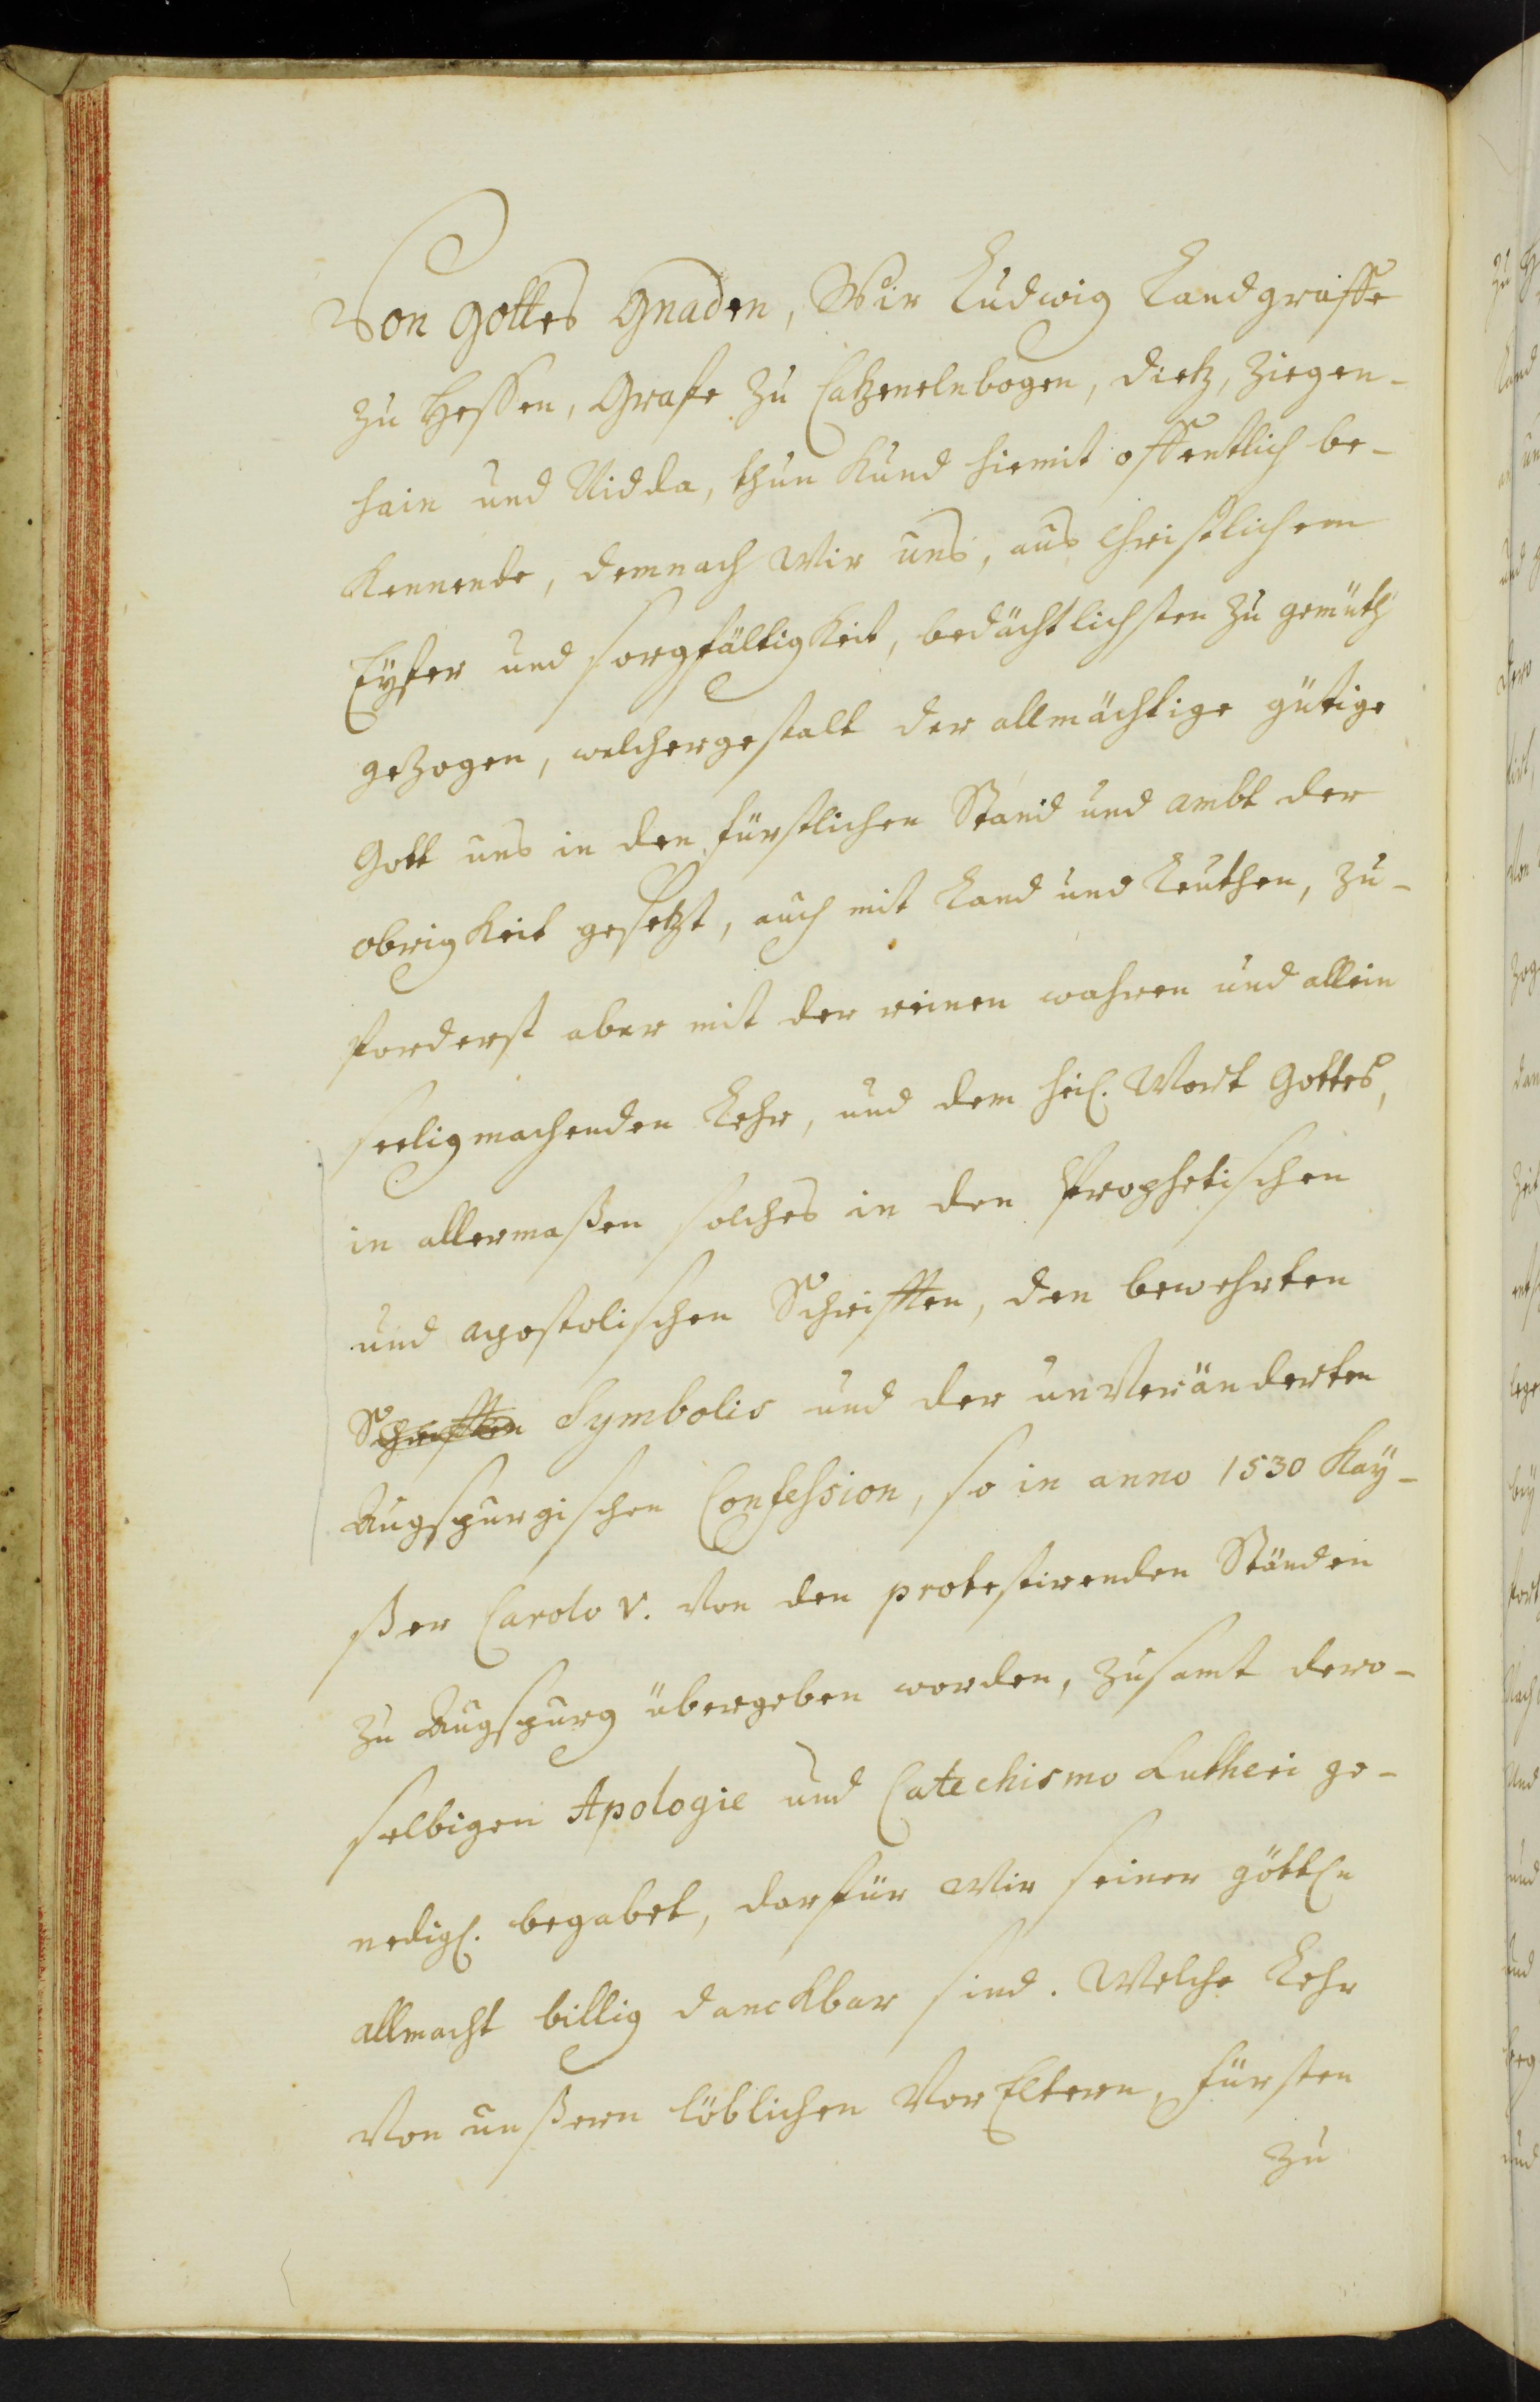 Von Gottes Gnaden, Wir Ludwig Landgraffe
zu Hessen, Grafe zu Catzenelnbogen, Dietz, Ziegen-
hain und Nidda, thun Kund hiemit offentlich be-
kennende, demnach Wir uns, aus Christlichem
Eyfer und sorgfältigkeit, bedächtlichsten zu gemüth
gezogen, welchergestalt der allmächtige gütige
Gott uns in den fürstlichen Stand und ambt der
obrigkeit gesetzt, auch mit Land und Leuthen, zu-
forderst aber mit der reinen wahren und allein
seeligmachenden Lehr, und dem heil. Wort Gottes,
in allermaßen solches in den Prophetischen
und apostolischen Schrifften, den bewehrten
Schrifften Symbolis und der unveränderten
Augspurgischen Confession, so in anno 1530 Kay-
ßer Carolo V. von den protestirenden Ständen
zu Augspurg übergeben worden, zusamt dero-
selbigen Apologie und Catechismo Lutheri ge-
nedigl. begabet, darfür Wir seiner göttln
allmacht billig danckbar sind. Welche Lehr
von unßern löblichen VorEltern, fürsten
zu